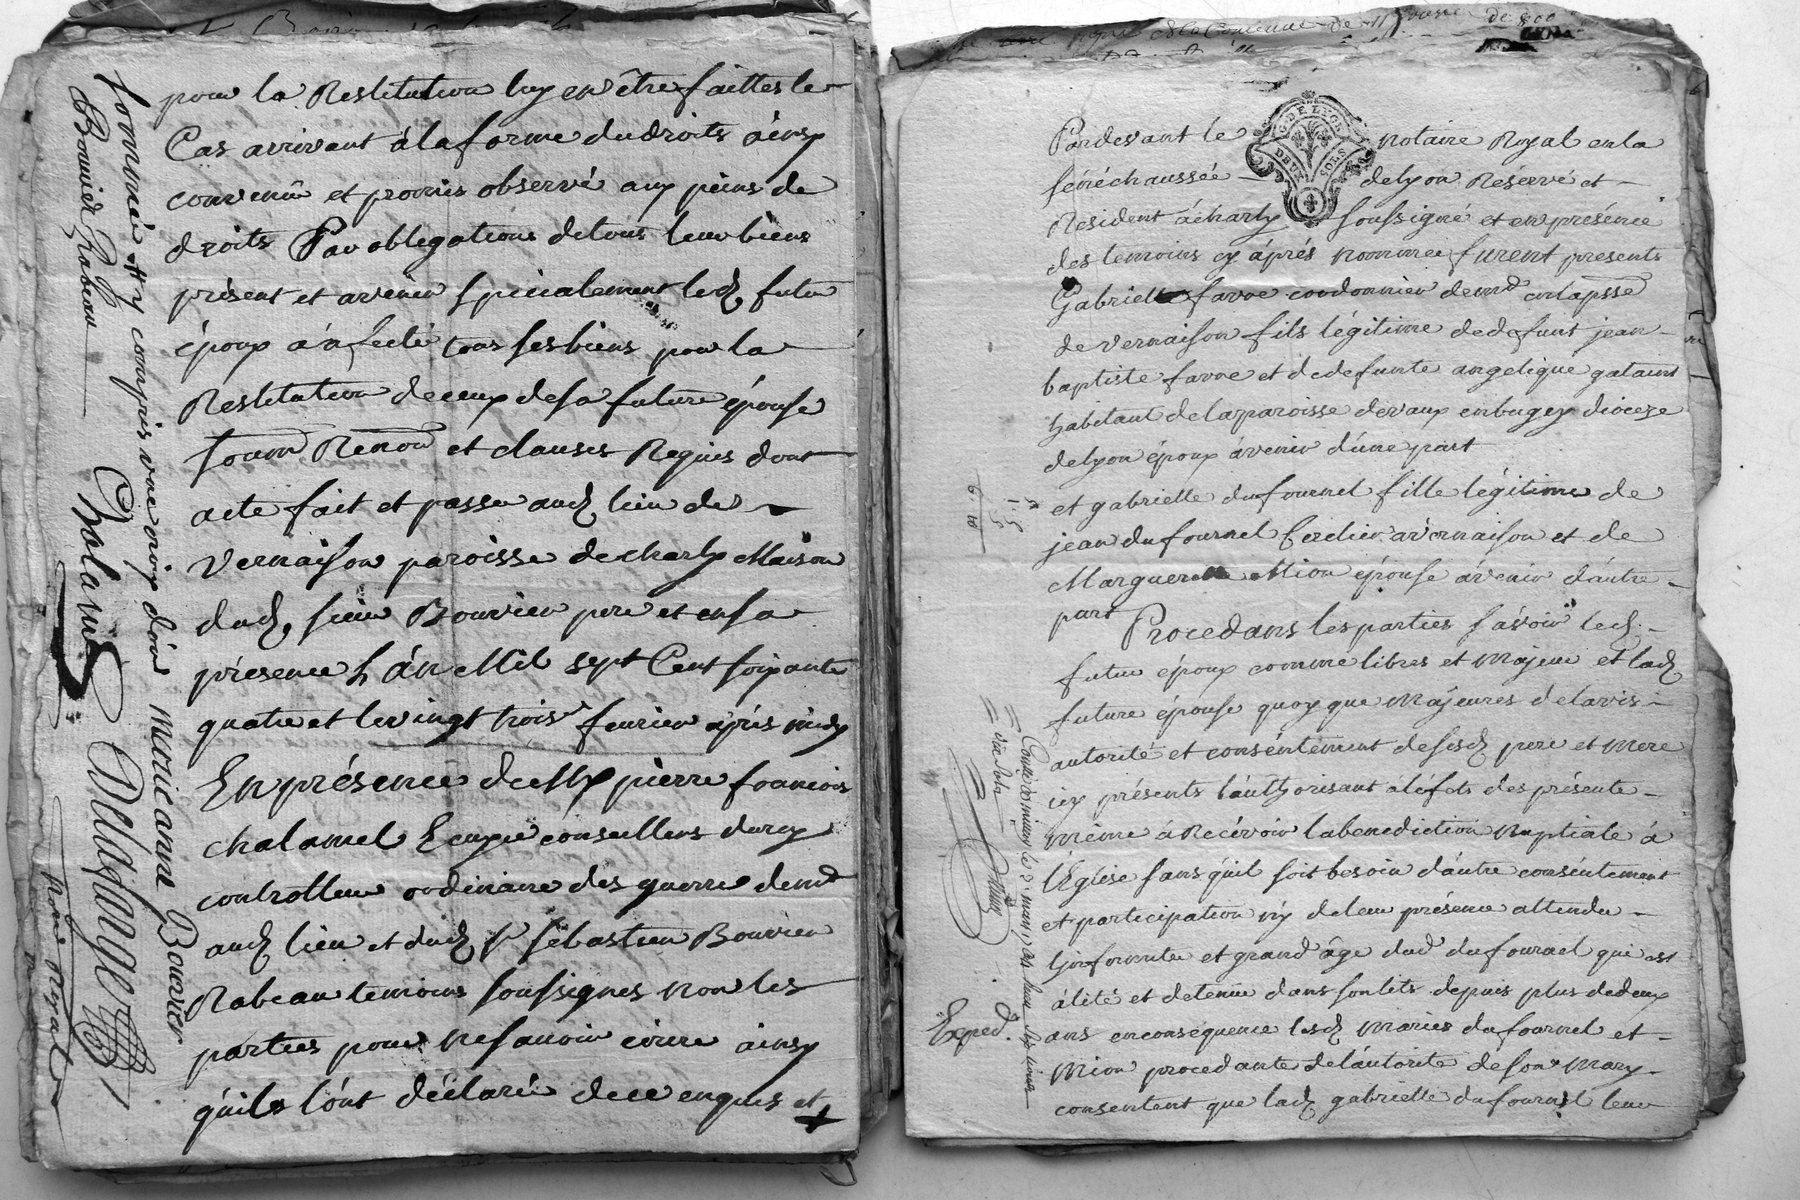 pour la Restitution luy en être faittes le
Cas arrivant à la forme du droits ainsy
convenû et promis observé aux peins de
droits Par obligations de tous leur biens
présent et avenir spécialement led futur
époux à afecté tous ses biens pour la
Restitution de ceux de sa future épouse
soum Renon et clauses Requis dont
acte fait et passé aud lieu de
Vernaison paroisse de charly Maison
dud. sieur Bouvier pere et en sa
présence L'án Mil sept Cent soixante
quatre et le vingt trois fevrier après midy
En présence de Me pierre francois
chalamel Ecuyer conseillers du roy
controlleur ordinaire des guerre demt
aud lieu et dud sr sébastien Bouvier
Rabeau temoins soussignes non les
parties pour ne savoir écrire ainsy
qu'ils l'ont déclaré de ce enquis et
sommé compris une voix d'ór marie anne Bouvier
Bouvier Rabeau
Cholamel
Delafange
Notre Royal
de 800
G. DE LYON
DEUX SOLS
Pardevant le notaire Royal en la
sénéchaussée de lyon Reservé et
Résident á charly soussigné et en présence
des temoins cy áprés nommee furent presents
Gabriel favre cordonnier demt en lapsse
de vernaison fils légitime de defunt jean
baptiste favre et de defunte angelique gataint
habitant de la paroisse de vaux en bugey dioceze
de lyon époux ávenir d'une part
et gabrielle dufournel fille légitime de
jean dufournel á vernaison et de
Marguerite Mion épouse ávenir d'autre
part Procedans les parties sávoir led.
futur époux comme libres et Majeur et lad
future épouse quoy que Majeures de lavis
autorité et conséntement de sesd pere et mere
icy présents l'authorisant á léfets des présente
mème á Recévoir la benediction Nuptiale á
l'Eglise sans qu'il soit besoin d'áutre conséntement
et participation ny de leur présence attendu
Linfirmite et grand âge dud dufournel qui est
álité et detenû dans son lits depuis plus de deux
ans en conséquence lesd mariés dufournel et
Mion procedante de láutorité de son mary
consentent que lad gabrielle dufournel leur
Exped.